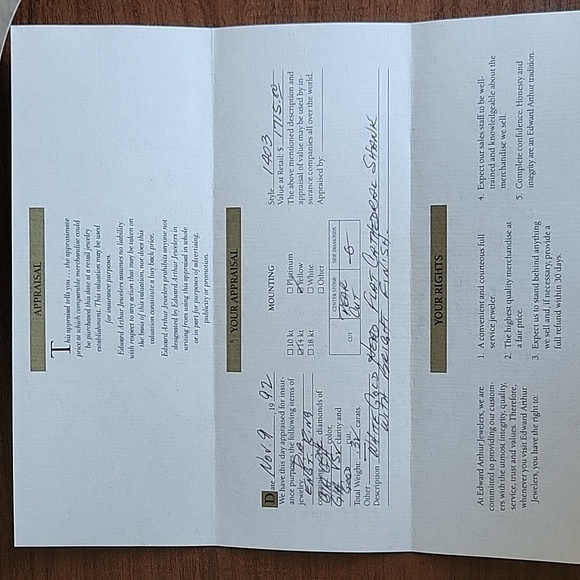 APPRAISAL
This appraisal tells you ... the approximate
price at which comparable merchandise could
be purchased this date at a retail jewelry
establishment. This valuation may be used
for insurance purposes.
Edward Arthur Jewelers assumes no liability
with respect to any action that may be taken on
the basis of this valuation, nor does this
valuation constitute a buy back price.
Edward Arthur Jewelers prohibits anyone not
designated by Edward Arthur Jewelers in
writing from using this appraisal in whole
or in part for purposes of advertising,
publicity or promotion.
YOUR APPRAISAL
Date Nov. 9, 1992
We have this day appraised for insur-
ance purposes the following items of
jewelry
ENG. RING
diamonds of
color,
clarity and
GOOD cut.
Total Weight: carats.
Other
Description HEAD FLAT CATHEDRAL SHANK
WITH BRIGHT FINISH
MOUNTING
10 kt Platinum
14 kt Yellow
18 kt White
Other
CUT CENTER STONE SIDE DIAMONDS
PEAR CUT -6-
Style 1403
Value at Retail: $ 1715.00
The above mentioned description and
appraisal of value may be used by in-
surance companies all over the world.
Appraised by:
YOUR RIGHTS
At Edward Arthur Jewelers, we are
committed to providing our custom-
ers with the utmost integrity, quality,
service, trust and values. Therefore,
whenever you visit Edward Arthur
Jewelers, you have the right to:
1. A convenient and courteous full
service jeweler.
2. The highest quality merchandise at
a fair price.
3. Expect us to stand behind anything
we sell and, if necessary, provide a
full refund within 30 days.
4. Expect our sales staff to be well-
trained and knowledgeable about the
merchandise we sell.
5. Complete confidence. Honesty and
integrity are an Edward Arthur tradition.